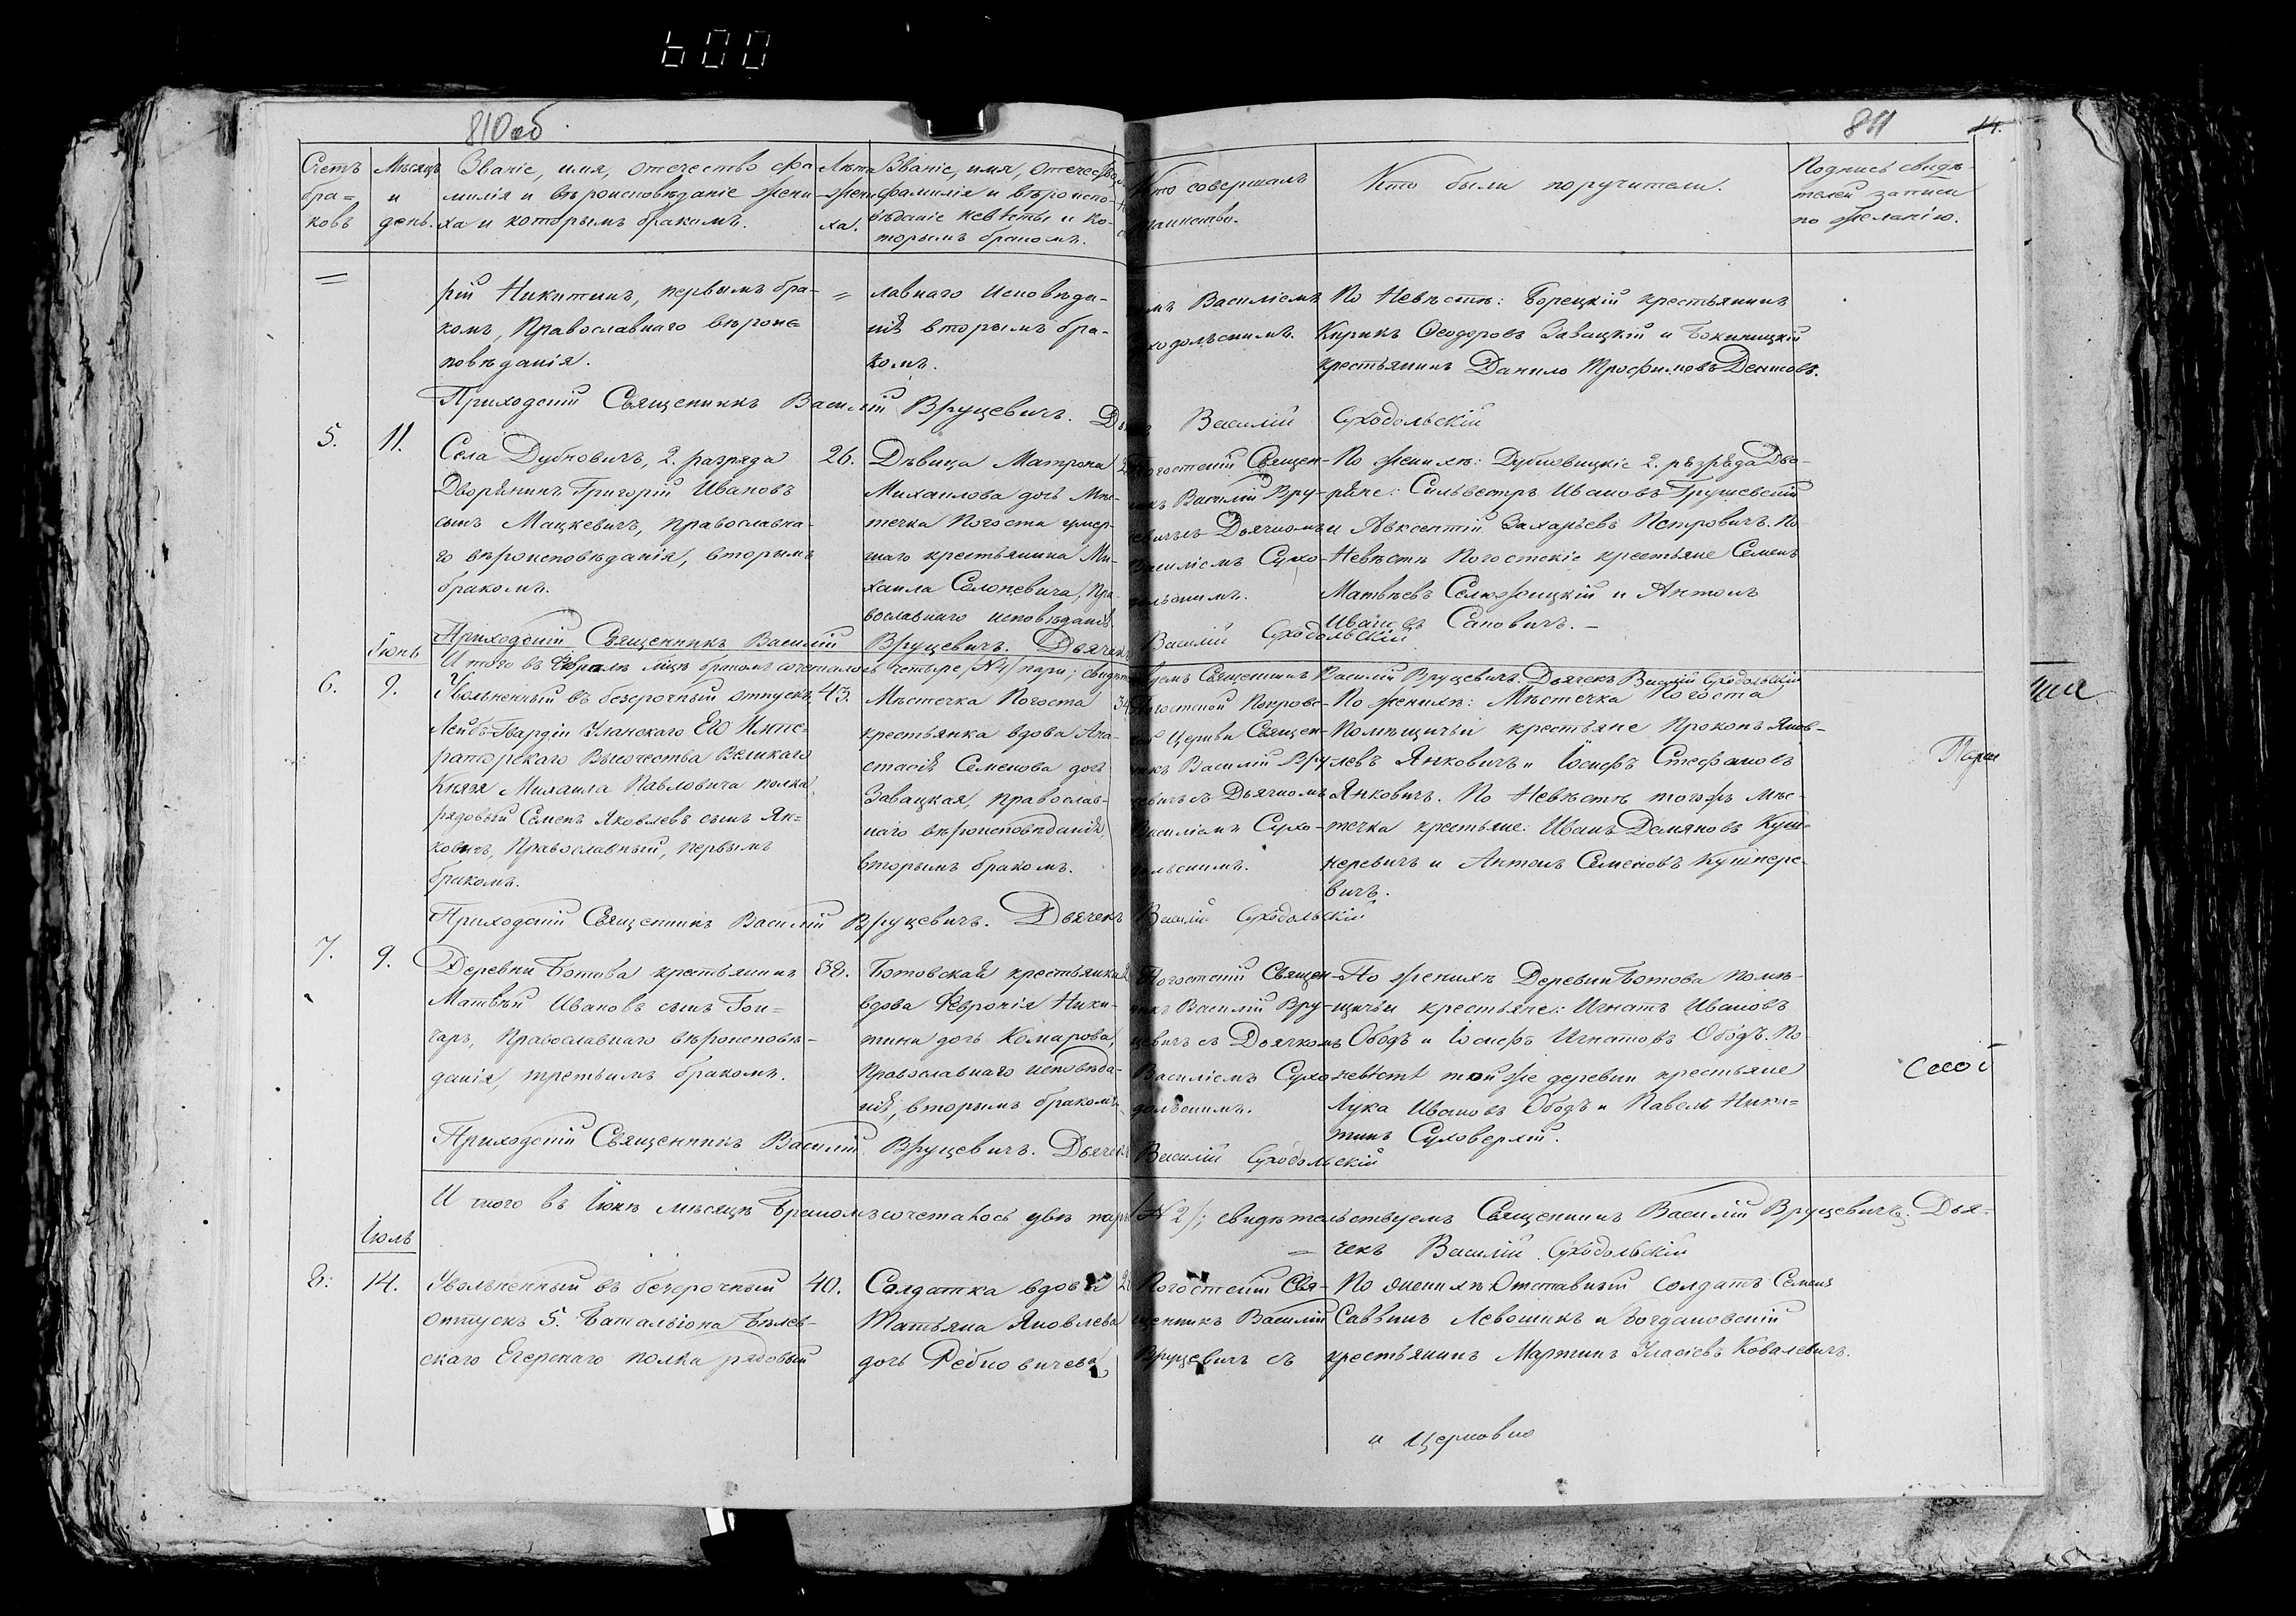 600
810об
811
14.
Счетъ бра=ковъ
Мѣсяцъ и день.
Званіе, имя, отечество фа
милія и вѣроисповѣданіе жени
ха и которымъ бракомъ.
Лѣта жени ха.
Званіе, имя, отечество,
фамилія и вѣроиспо-
вѣданіе невѣсты и ко-
торымъ бракомъ.
Кто совершалъ
таинство.
Кто были поручители.
Подпись свидѣ-
телей записи
по желанію.
=
рій Никитинъ, первымъ бра-
комъ, Православнаго вѣроис=
повѣданія.
=
лавнаго исповѣда-
нія вторымъ бра-
комъ.
мъ Василіемъ
ходольскимъ.
По Невѣстѣ: Борецкій крестьянинъ
Кирикъ Ѳеодоровъ Завацкій и Бокиницкій
крестьянинъ Данило Трофимовъ
Приходскій Священникъ Василій Вруцевичъ. Василій Суходольскій
5.
11.
Села Дубновичъ, 2. разряда
Дворянинъ Григорій Ивановъ
сынъ Мацкевичъ, православна-
го вѣроисповѣданія, вторымъ
бракомъ.
26.
Дѣвица Матрона
Михаилова дочь Мѣс-
течка Погоста умер-
шаго крестьянина Ми-
хаила Солоневича, Пра-
вославнаго исповѣданія
Погостскій Священ-
никъ Василій Вру-
цевичъ съ Дьячкомъ
Василіемъ Сухо-
дольскимъ.
По женихѣ: Дубновицкіе 2. разряда Дво-
ряне: Сильвестръ Ивановъ Грушевскій
и Авксентій Захарьевъ Петровичъ. По
Невѣстѣ Погостскіе крестьяне Семенъ
Матвѣевъ Селюжицкій и Антонъ
Ивановъ Сановичъ. –
Приходскій Священникъ Василій Вруцевичъ. Дьячекъ Василій Суходольскій
Итого въ Февралѣ мцѣ бракомъ сочеталось четыре /№4/ пары; свидѣтельствуемъ Священникъ Василій Вруцевичъ. Дьячекъ Василій Суходольскій
Іюнь
6.
9.
Увольненный въ безсрочный отпускъ
Лейбъ-Гвардіи Уланскаго Его Импе=
раторскаго Высочества Великаго
Князя Михаила Павловича полка
рядовый Семенъ Яковлевъ сынъ Ян=
ковичъ, Православный, первымъ
бракомъ.
43.
Мѣстечка Погоста
крестьянка вдова Ана-
стасія Семенова дочь
Завацкая, православ-
наго вѣроисповѣданія,
вторымъ бракомъ.
34
Погостской Покровс-
кой Церкви Священ-
никъ Василій Вру
цевичъ съ Дьячкомъ
Василіемъ Сухо-
дольскимъ.
По женихѣ: Мѣстечка Погоста
Помѣщичьи крестьяне Прокопъ Яков-
левъ Янковичъ и Іосифъ Стефановъ
Янковичъ. По Невѣстѣ тогожъ мѣс-
течка крестьяне: Иванъ Демяновъ Куш-
неревичъ и Антонъ Семеновъ Кушнере-
вичъ.
Приходскій Священникъ Василій Вруцевичъ. Дьячекъ Василій Суходольскій
7.
9.
Деревни Ботова крестьянинъ
Матвѣй Ивановъ сынъ Гон=
чаръ, Православнаго вѣроисповѣ-
данія, третьимъ бракомъ.
38.
Ботовская крестьянка
вдова Февронія Ники-
тина дочь Комарова,
Православнаго исповѣда-
нія, вторымъ бракомъ.
Погостскій Священ-
никъ Василій Вру-
цевичъ съ Дьячкомъ
Василіемъ Сухо
дольскимъ.
По женихѣ Деревни Ботова помѣ-
щичьи крестьяне: Игнатъ Ивановъ
Ободъ и Іосифъ Игнатовъ Ободъ. По
невѣстѣ той же деревни крестьяне
Лука Ивановъ Ободъ и Павелъ Ники=
тинъ Суховерхій.
Приходскій Священникъ Василій Вруцевичъ. Дьячекъ Василій Суходольскій
Итого въ Іюнѣ мѣсяцѣ бракомъ сочеталось двѣ пары /№ 2/; свидѣтельствуемъ Священникъ Василій Вруцевичъ. Дья-
чекъ Василій Суходольскій
Іюль
8.
14.
Увольненный въ безсрочный
отпускъ 5. Баталіона Бѣлев-
скаго Егерскаго полка рядовый
40.
Солдатка вдова
Татьяна Яковлева
дочь Ребковичева,
Погостскій Свя-
щенникъ Василій
Вруцевичъ съ
По женихѣ Отставный солдатъ Семенъ
Саввинъ Левошикъ и Богдановскій
крестьянинъ Мартинъ Власіевъ Ковалевичъ.
и Церковно